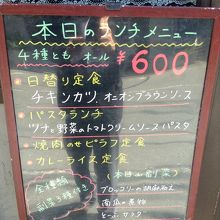 本日のランチメニュー
4種とも オール ¥600
日替り定食
チキンカツ、オニオンブラウンソース
パスタランチ
ツナと野菜のトマトクリームソースパスタ
焼肉のせピラフ定食
カレーライス定食
全種類 (本日の副菜)
副菜3種付き ブロッコリーの胡麻和え
南瓜の煮物
とーふサラダ